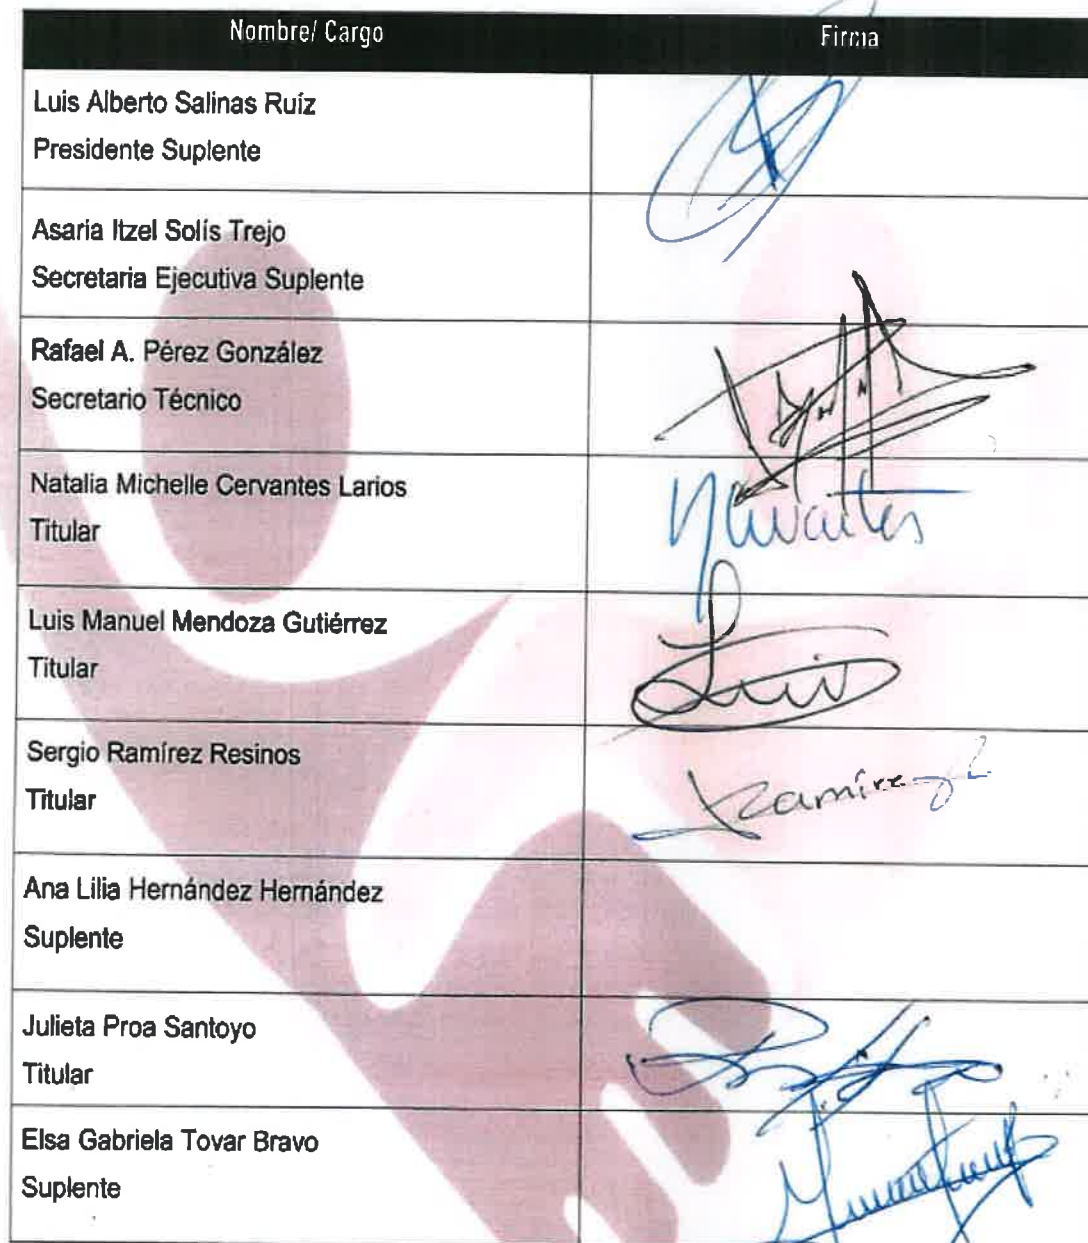 Nombre/ Cargo Firma
Luis Alberto Salinas Ruíz
Presidente Suplente
Asaria Itzel Solís Trejo
Secretaria Ejecutiva Suplente
Rafael A. Pérez González
Secretario Técnico
Natalia Michelle Cervantes Larios
Titular
Luis Manuel Mendoza Gutiérrez
Titular
Luis
Sergio Ramírez Resinos
Titular
Ramírez
Ana Lilia Hernández Hernández
Suplente
Julieta Proa Santoyo
Titular
Elsa Gabriela Tovar Bravo
Suplente